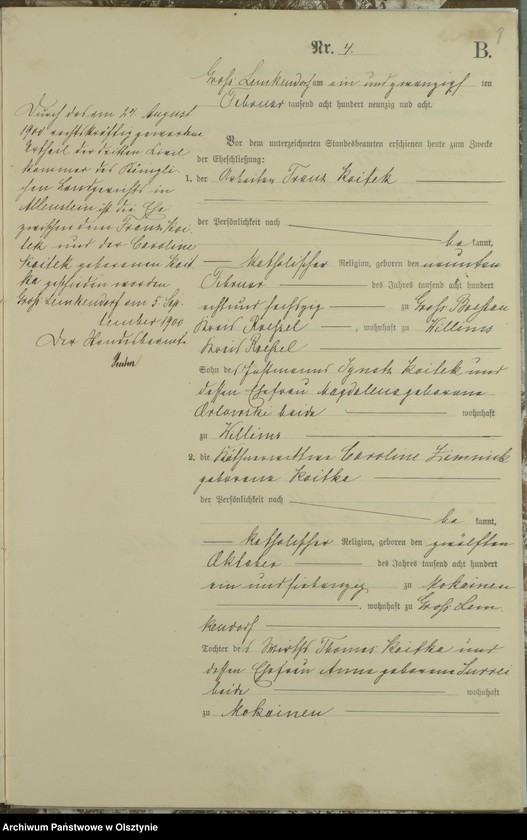 Nr. 4.
B.
Groß Lemkendorf am ein und zwanzigsten
Februar tausend acht hundert neunzig und acht.
Durch das am 24 August
1900 rechtskräftig gewordene
Urtheil der dritten Civil
kammer des Königli
chen Landgerichts in
Allenstein ist die Ehe
zwischen dem Franz Koi
tek und der Caroline
Koitek geborenen Koit
ka geschieden worden
Groß Lemkendorf am 5. Sep
tember 1900
Der Standesbeamte
Vor dem unterzeichneten Standesbeamten erschienen heute zum Zwecke
der Eheschließung:
1. der Arbeiter Franz Koitek
der Persönlichkeit nach
be kannt,
katholischer Religion, geboren den neunten
Februar des Jahres tausend acht hundert
acht und sechszig zu Groß
Kreis Roessel, wohnhaft zu Willims
Kreis Roessel
Sohn des Instmanns Ignatz Koitek und
dessen Ehefrau Magdalena geborene
Orlowski beide wohnhaft
zu Willims
2. die Käthnerwittwe Caroline
geborene Koitka
der Persönlichkeit nach
be kannt,
katholischer Religion, geboren den zwölften
Oktober des Jahres tausend acht hundert
ein und siebenzig zu Mokainen
, wohnhaft zu Groß Lem
kendorf
Tochter des Wirths Thomas Koitka und
dessen Ehefrau Anna geborene
beide wohnhaft
zu Mokainen
Archiwum Państwowe w Olsztynie